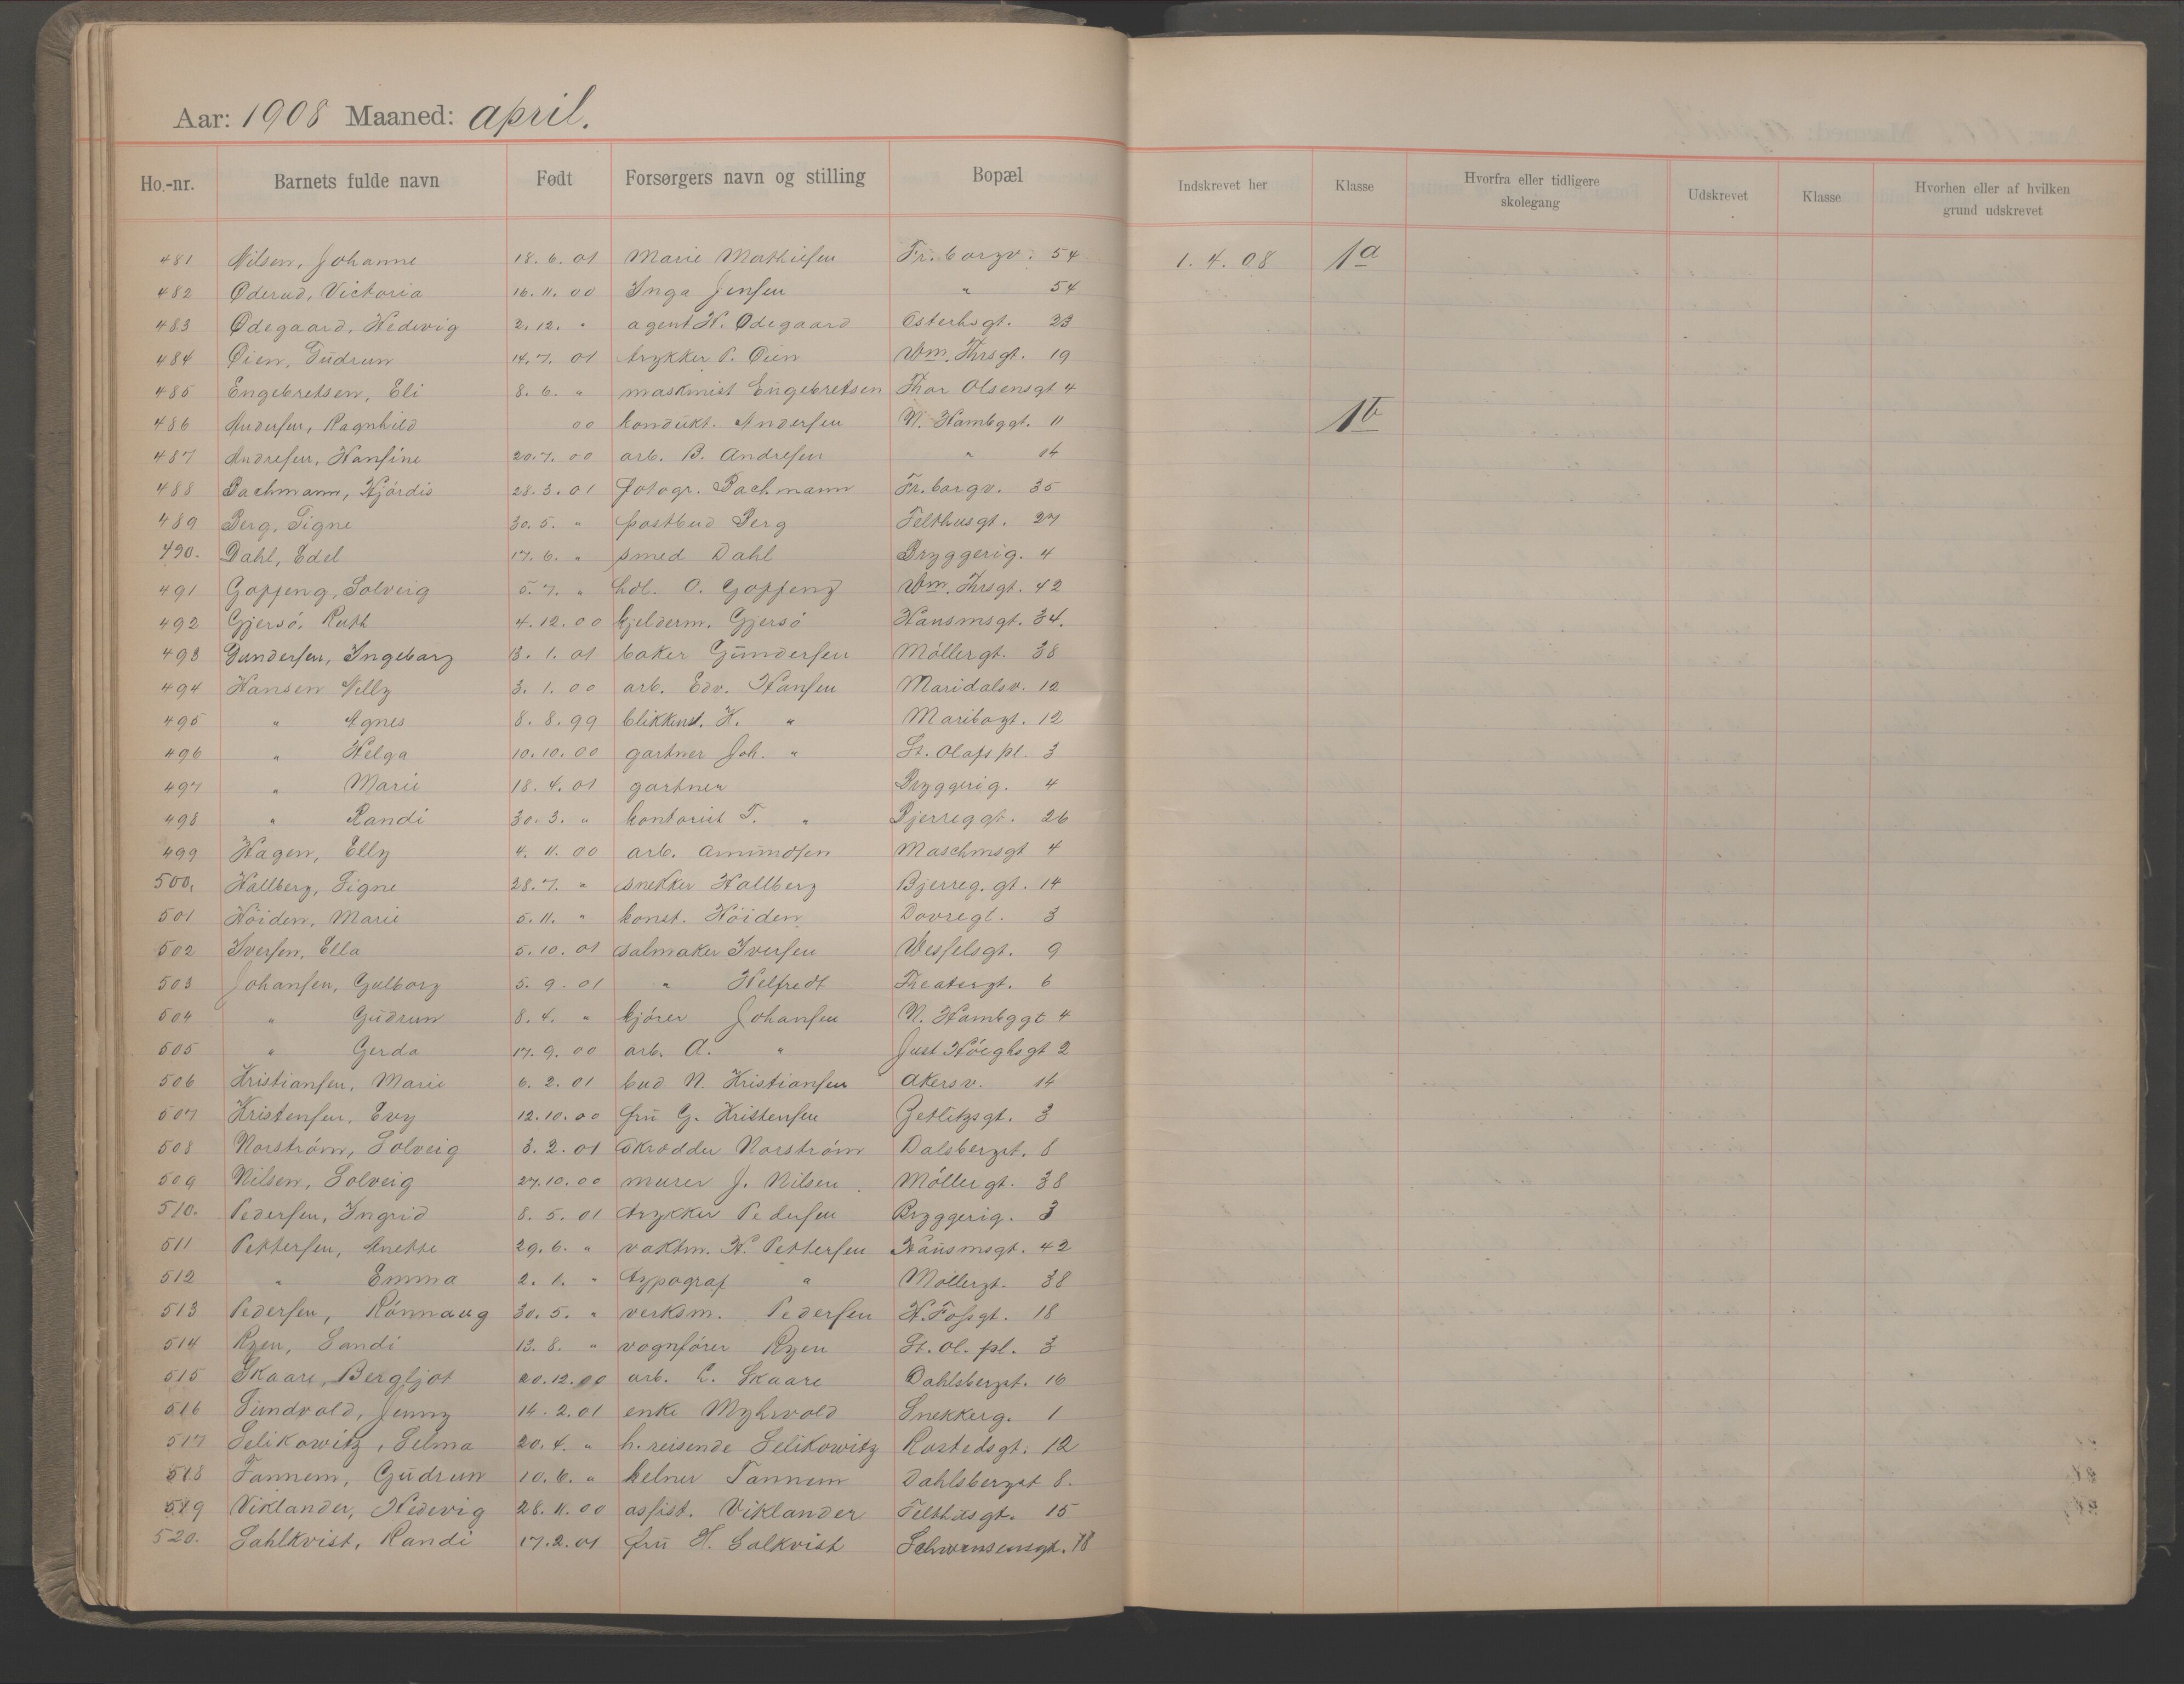 Aar: 1908 Maaned: april.
Ho.-nr. Barnets fulde navn Født Forsørgers navn og stilling Bopæl Indskrevet her Klasse Hvorfra eller tidligere skolegang Udskrevet Klasse Hvorhen eller af hvilken grund udskrevet
481 Nilsen, Johanne 18. 6. 01 Marie Mathiesen Fr.borgv. 54 1. 4. 08 1a
482 Øderud, Victoria 16. 11. 00 Inga Jensen " 54
483 Ødegaard, Hedevig 2. 12. " agent H. Ødegaard Osterhsgt. 23
484 Øien, Gudrun 14. 7. 01 trykker P. Øien Wm. Thrsgt. 19
485 Engebretsen, Eli 8. 6. " maskinist Engebretsen Thor Olsensgt 4
486 Andersen, Ragnhild 00 kondukt. Andersen N. Hambggt. 11 1b
487 Andresen, Hansine 20. 7. 00 arb. B. Andresen " 14
488 Bachmann, Hjördis 28. 3. 01 fotogr. Bachmann Fr.borgv. 35
489 Berg, Signe 30. 5. " postbud Berg Felthusgt. 27
490. Dahl, Edel 17. 6. " smed Dahl Bryggerig. 4
491 Gopfeng, Solveig 5. 7. " hdl. O. Gopfeng Wm. Thrsgt. 42
492 Gjersö, Ruth 4. 12. 00 kjelderm. Gjersö Hausmsgt. 34.
493 Gundersen, Ingeborg 13. 1. 01 baker Gundersen Möllergt. 38
494 Hansen Nelly 3. 1. 00 arb. Edv. Hansen Maridalsv. 12
495 " Agnes 8. 8. 99 blikkensl. K. " Maribogt. 12
496 " Helga 10. 10. 00 gartner Joh. " St. Olafs pl. 3
497 " Marie 18. 4. 01 gartner Bryggerig. 4
498 " Randi 30. 3. " kontorist T. " Bjerreggt. 26
499 Hagen, Elly 4. 11. 00 arb. Amundsen Maschmsgt 4
500. Hallberg, Signe 28. 7. " snekker Hallberg Bjerreg. gt. 14
501 Höiden, Marie 5. 11. " konst. Höiden Dovregt. 3
502 Iversen, Ella 5. 10. 01 salmaker Iversen Wesselsgt. 9
503 Johansen, Gulborg 5. 9. 01 " Helfredt Theatergt. 6
504 " Gudrun 8. 4. " kjörer Johansen N. Hambggt 4
505 " Gerda 17. 9. 00 arb. A. " Just Höeghsgt 2
506 Kristiansen, Marie 6. 2. 01 bud N. Kristiansen Akersv. 14
507 Kristensen, Evy 12. 10. 00 fru G. Kristensen Zetlitzsgt. 3
508 Norström, Solveig 3. 2. 01 skrædder Norström Dalsbergst. 8
509 Nilsen, Solveig 27. 10. 00 murer J. Nilsen Möllergt. 38
510. Pedersen, Ingrid 8. 5. 01 trykker Pedersen Bryggerig. 3
511 Pettersen, Anette 29. 6. " vaktm. H. Pettersen Hausmsgt. 42
512 " Emma 2. 1. " typograf " Möllergt. 38
513 Pedersen, Rönnaug 30. 5. " verksm. Pedersen K. Fossgt. 18
514 Ryen, Sandi 13. 8. " vognförer Ryen St. Ol. pl. 3
515 Skaare, Bergljot 20. 12. 00 arb. L. Skaare Dahlsbergst. 16
516 Sundvold, Jenny 14. 2. 01 enke Myhrvold Snekkerg. 1
517 Selikowitz, Selma 20. 4. " h. reisende Selikowitz Rostedsgt. 12
518 Tannem, Gudrun 10. 6. " kelner Tannem Dahlsbergst 8.
519 Viklander, Hedevig 28. 11. 00 assist. Viklander Felthusgt. 15
520. Sahlkvist, Randi 17. 2. 01 fru H. Salkvist Schwensensgt. 18